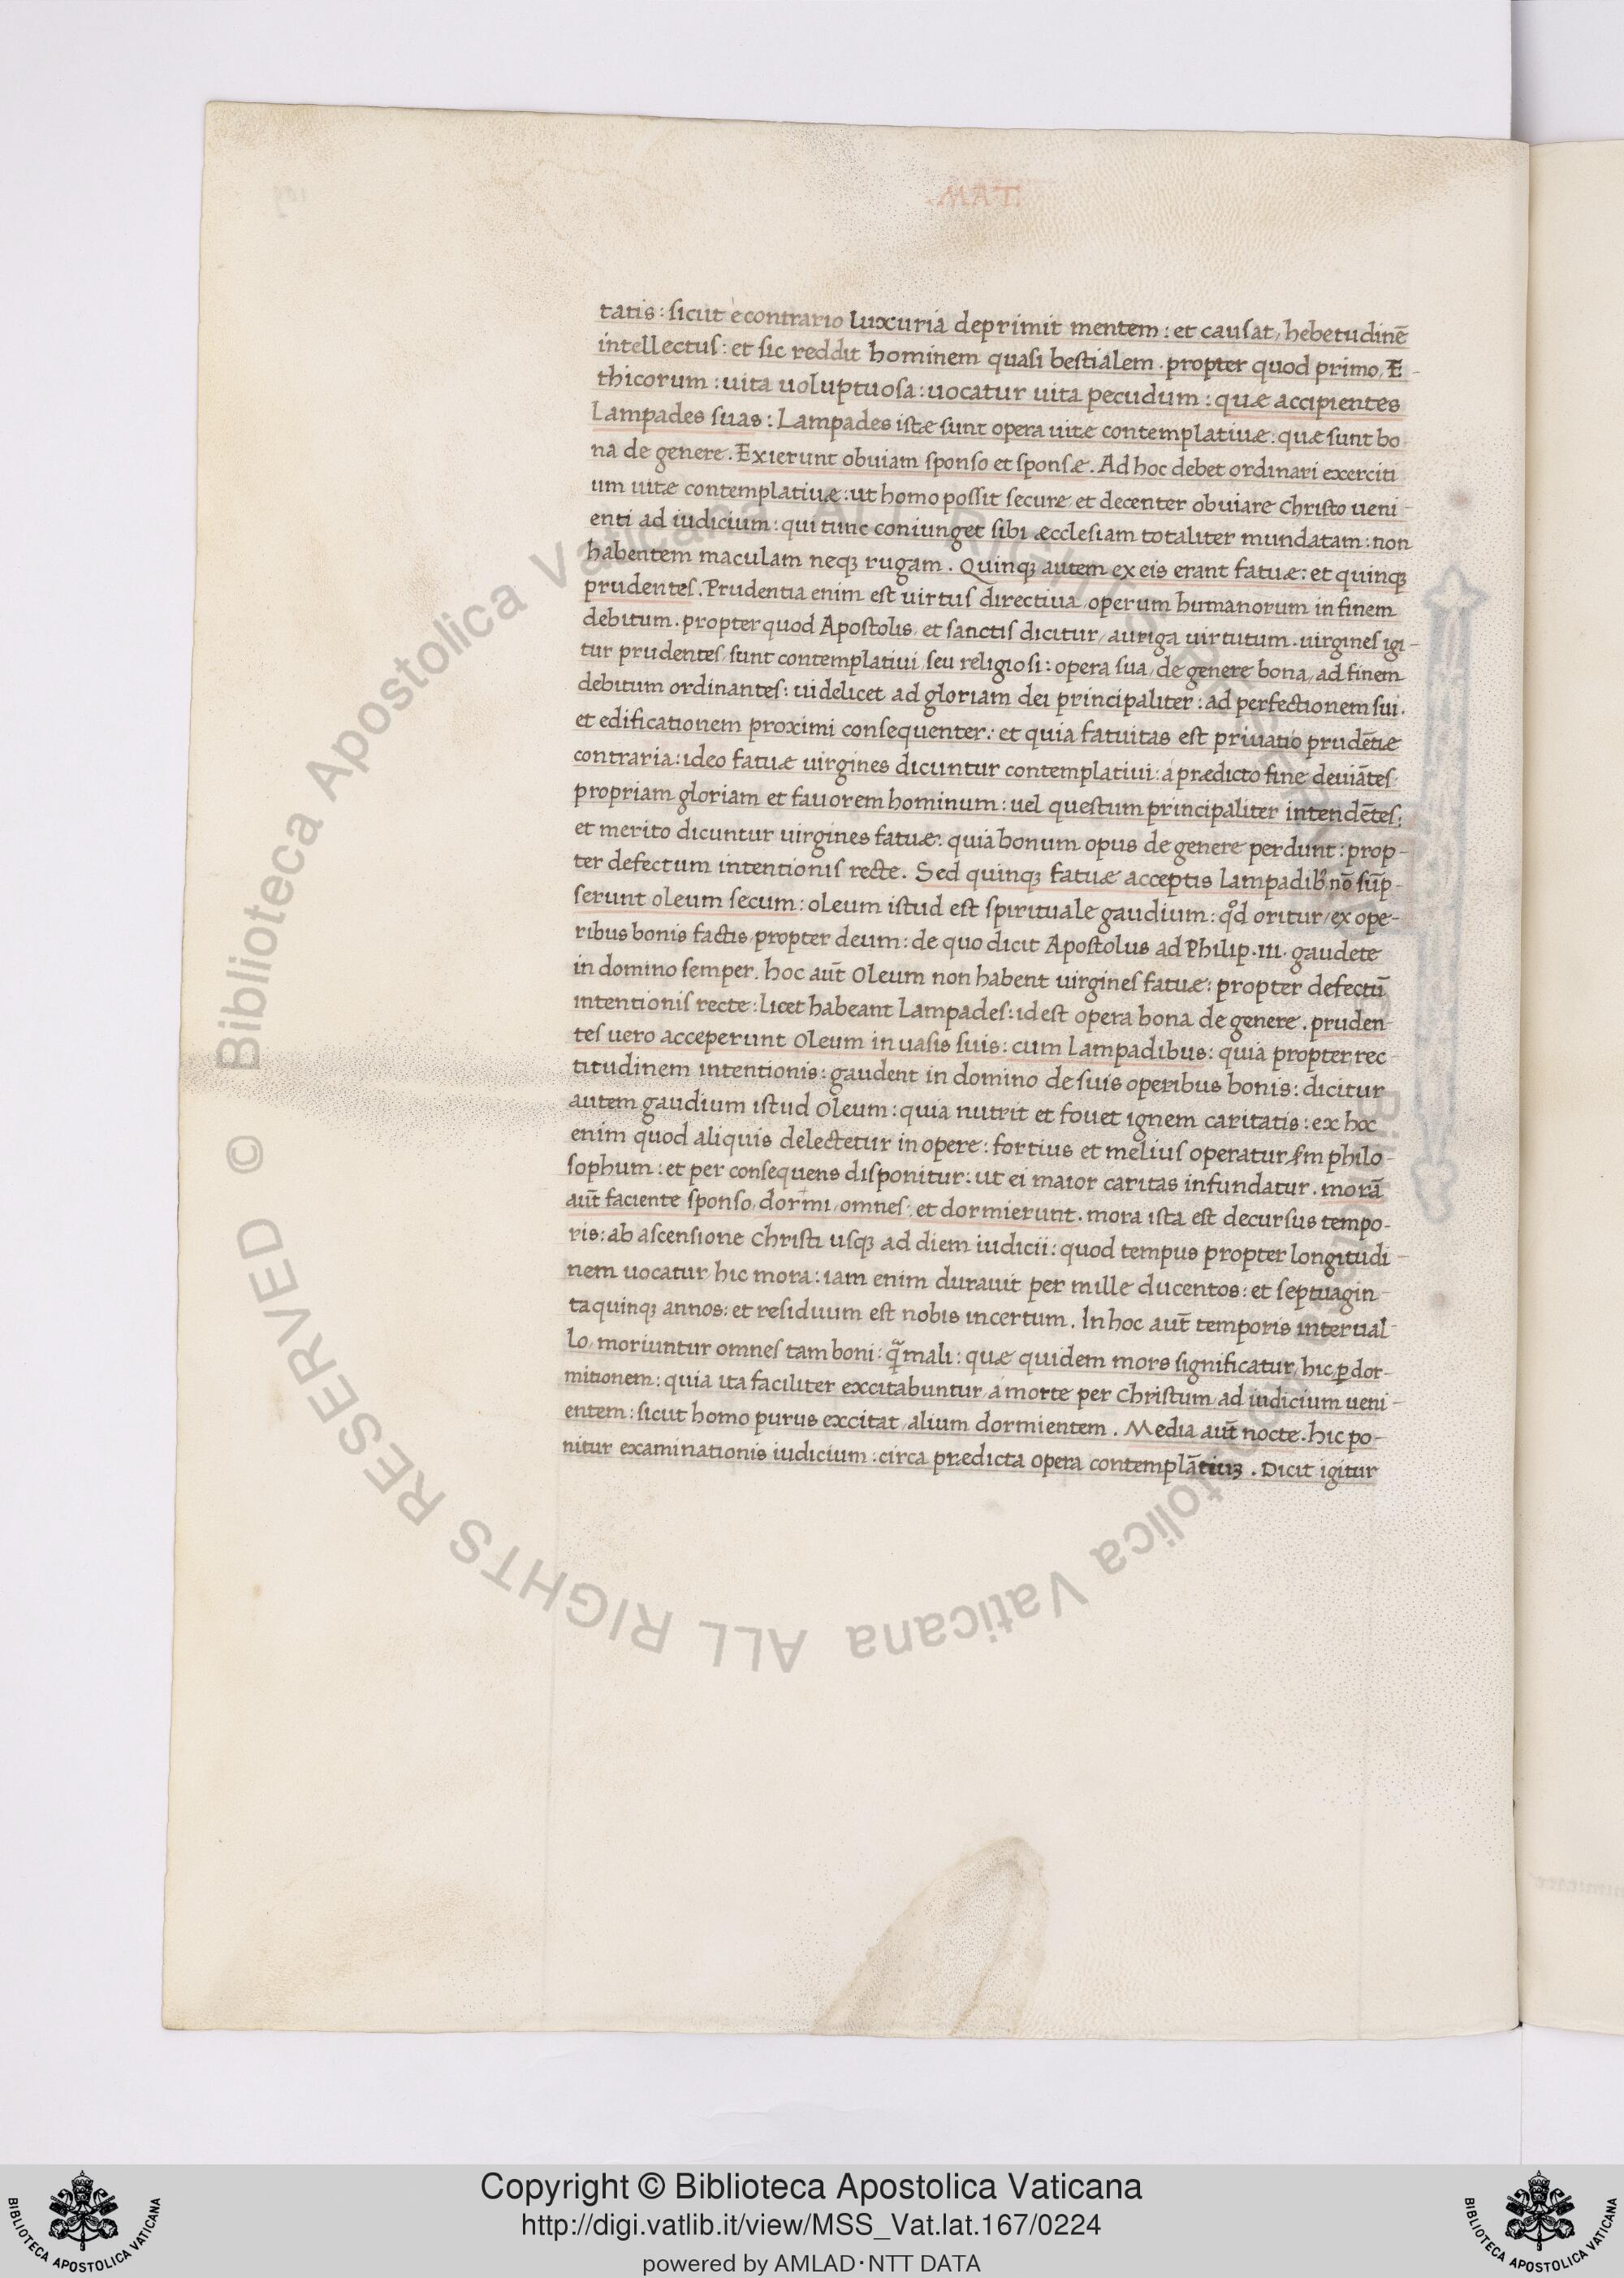 .MAT.
tatis: sicut e contrario luxuria deprimit mentem: et causat, hebetudinē
intellectus: et sic reddit hominem quasi bestialem. propter quod primo, E-
thicorum: uita uoluptuosa: uocatur uita pecudum: quæ accipientes
Lampades suas: Lampades istæ sunt opera uitæ contemplatiuæ. quæ sunt bo
na de genere. Exierunt obuiam sponso et sponsæ. Ad hoc debet ordinari exerciti
um uitæ contemplatiuæ: ut homo possit secure et decenter obuiare Christo ueni-
enti ad iudicium: qui tunc coniunget sibi æcclesiam totaliter mundatam: non
habentem maculam neqꝫ rugam. Quinqꝫ autem ex eis erant fatuæ: et quinqꝫ
prudentes. Prudentia enim est uirtus directiua, operum humanorum in finem
debitum. propter quod Apostolis, et sanctis dicitur, auriga uirtutum. uirgines igi-
tur prudentes, sunt contemplatiui, seu religiosi: opera sua, de genere bona, ad finem
debitum ordinantes: uidelicet ad gloriam dei principaliter: ad perfectionem sui.
et edificationem proximi consequenter: et quia fatuitas est priuatio prudētiæ
contraria: ideo fatuæ uirgines dicuntur contemplatiui: a prædicto fine deuiātes
propriam gloriam et fauorem hominum: uel questum principaliter intendētes:
et merito dicuntur uirgines fatuæ. quia bonum opus de genere perdunt: prop-
ter defectum intentionis recte. Sed quinqꝫ fatuæ acceptis lampadibꝰ nō sūp-
serunt oleum secum: oleum istud est spirituale gaudium: qd̊ oritur, ex ope-
ribus bonis factis, propter deum: de quo dicit Apostolus ad Philip. III. gaudete
in domino semper. hoc aut̄ Oleum non habent uirgines fatuæ: propter defectū
intentionis recte: licet habeant Lampades: id est opera bona de genere. pruden-
tes uero acceperunt Oleum in uasis suis: cum Lampadibus: quia propter, rec
titudinem intentionis: gaudent in domino de suis operibus bonis: dicitur
autem gaudium istud Oleum: quia nutrit et fouet ignem caritatis: ex hoc
enim quod aliquis delectetur in opere: fortius et melius operatur ẜm philo-
sophum: et per consequens disponitur: ut ei maior caritas infundatur. morā
aut̄ faciente sponso, dormi, omnes, et dormierunt. mora ista est decursus tempo-
ris: ab ascensione Christi usqꝫ ad diem iudicii: quod tempus propter longitudi-
nem uocatur hic mora: iam enim durauit per mille ducentos: et septuagin-
ta quinqꝫ annos: et residuum est nobis incertum. In hoc aut̄ temporis interual-
lo, moriuntur omnes tam boni: q̄ mali: quæ quidem mors significatur, hic, ꝑ dor-
mitionem: quia ita faciliter excitabuntur, a morte per Christum, ad iudicium ueni-
entem: sicut homo purus excitat, alium dormientem. Media aut̄ nocte. hic po-
nitur examinationis iudicium: circa prædicta opera contemplātiuꝫ. Dicit igitur
© Biblioteca Apostolica Vaticana ALL RIGHTS RESERVED
Copyright © Biblioteca Apostolica Vaticana
http://digi.vatlib.it/view/MSS_Vat.lat.167/0224
powered by AMLAD·NTT DATA
BIBLIOTECA APOSTOLICA VATICANA
BIBLIOTECA APOSTOLICA VATICANA